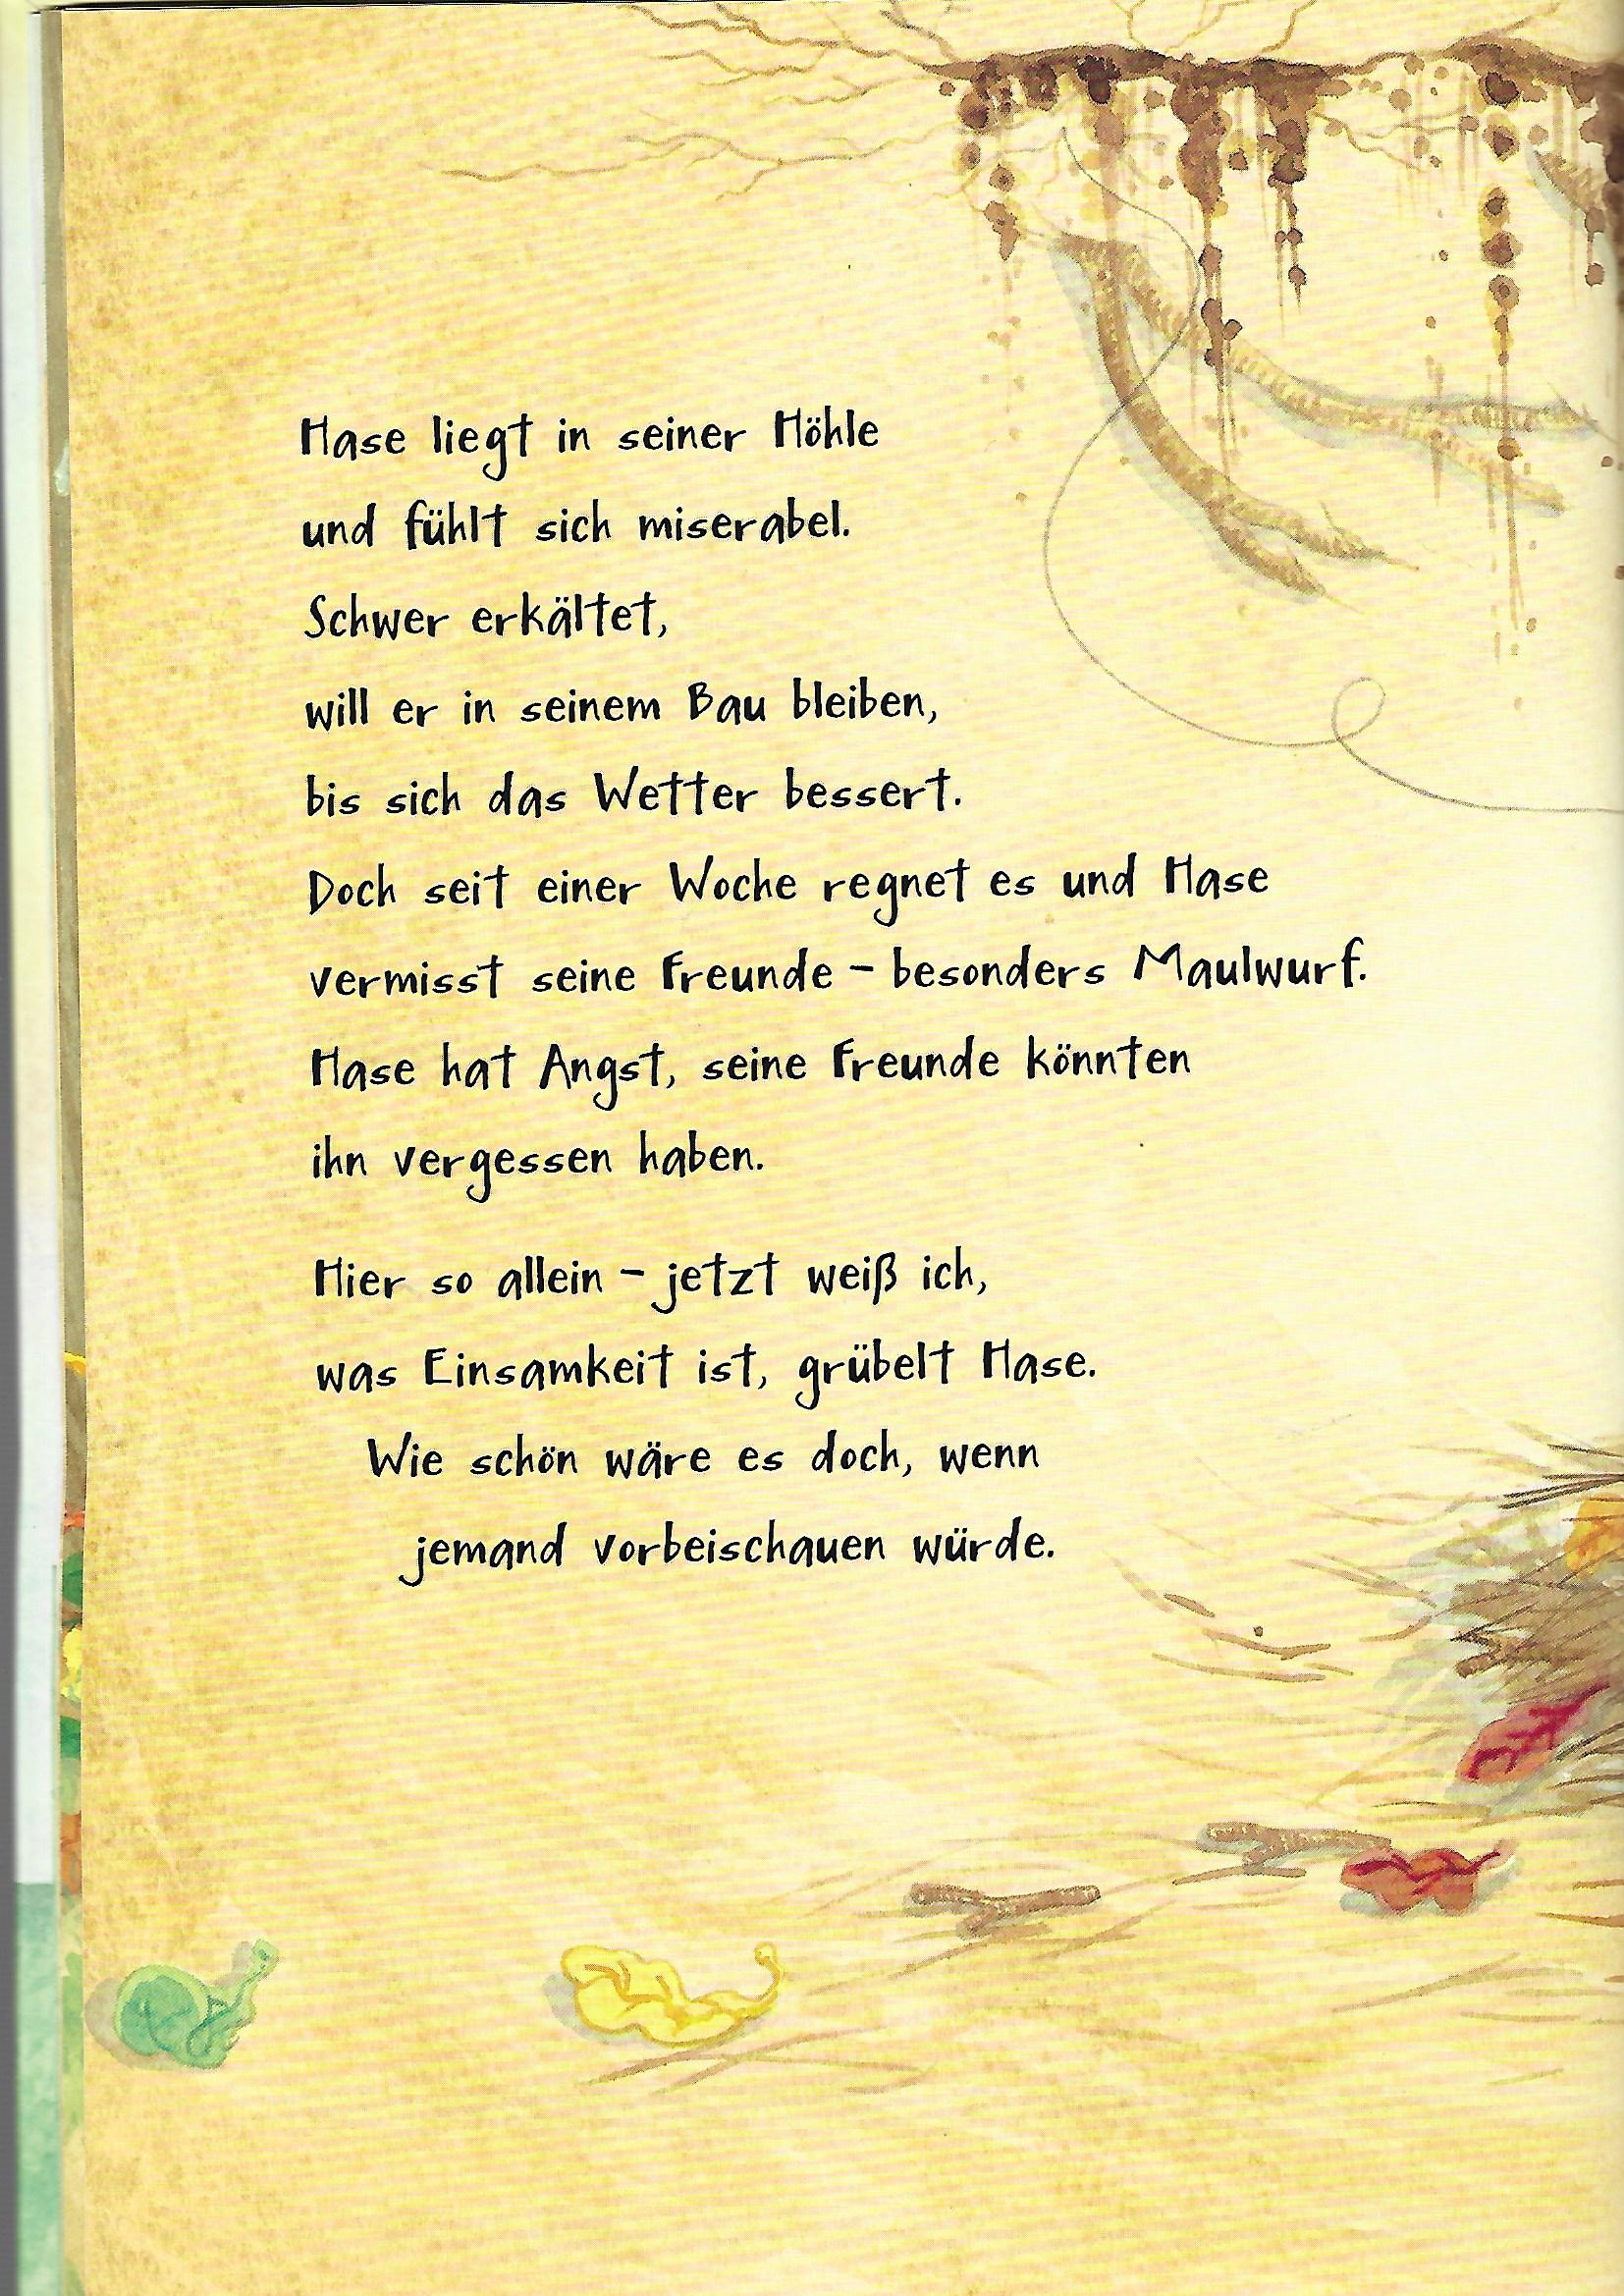 Hase liegt in seiner Höhle
und fühlt sich miserabel.
Schwer erkältet,
will er in seinem Bau bleiben,
bis sich das Wetter bessert.
Doch seit einer Woche regnet es und Hase
vermisst seine Freunde – besonders Maulwurf.
Hase hat Angst, seine Freunde könnten
ihn vergessen haben.
Hier so allein – jetzt weiß ich,
was Einsamkeit ist, grübelt Hase.
Wie schön wäre es doch, wenn
jemand vorbeischauen würde.